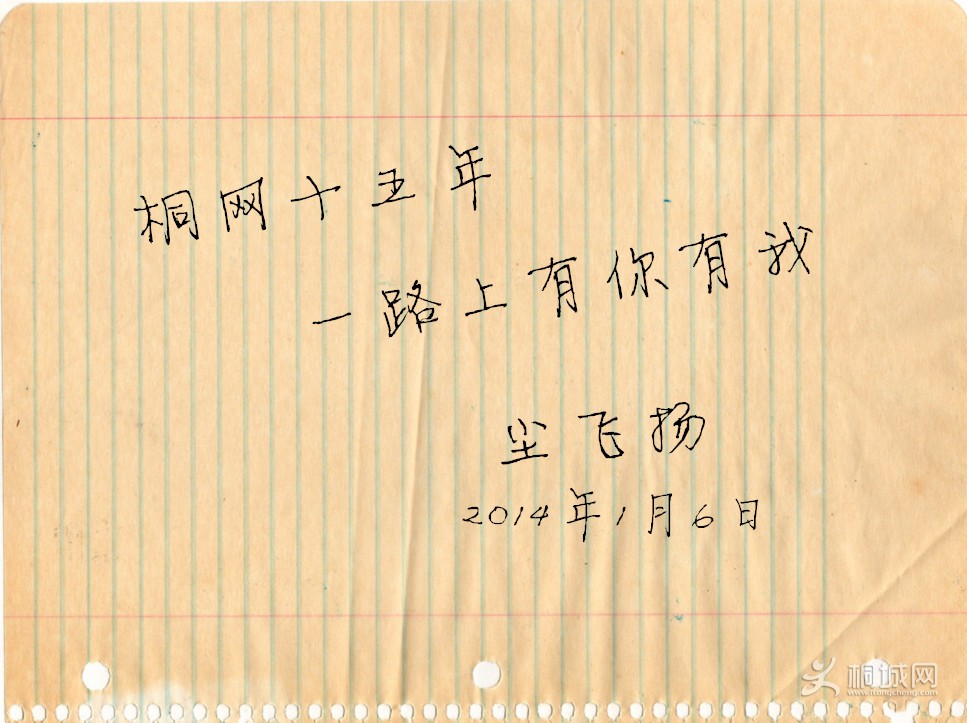 桐网十五年
一路上有你有我
尘飞扬
2014年1月6日
桐城网
www.tongcheng.com